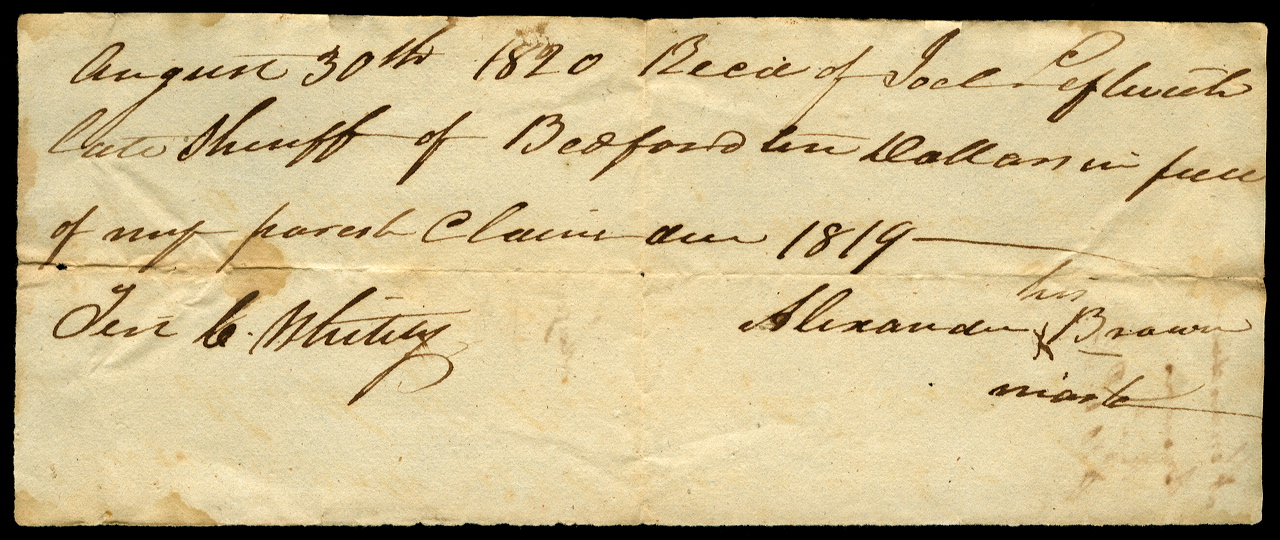 August 30th 1820 Recd of Joel Leftwich
late Sheriff of Bedford ten Dollars in full
of my parish Claim due 1819
his
Test C. Whitely Alexander X Brown
mark